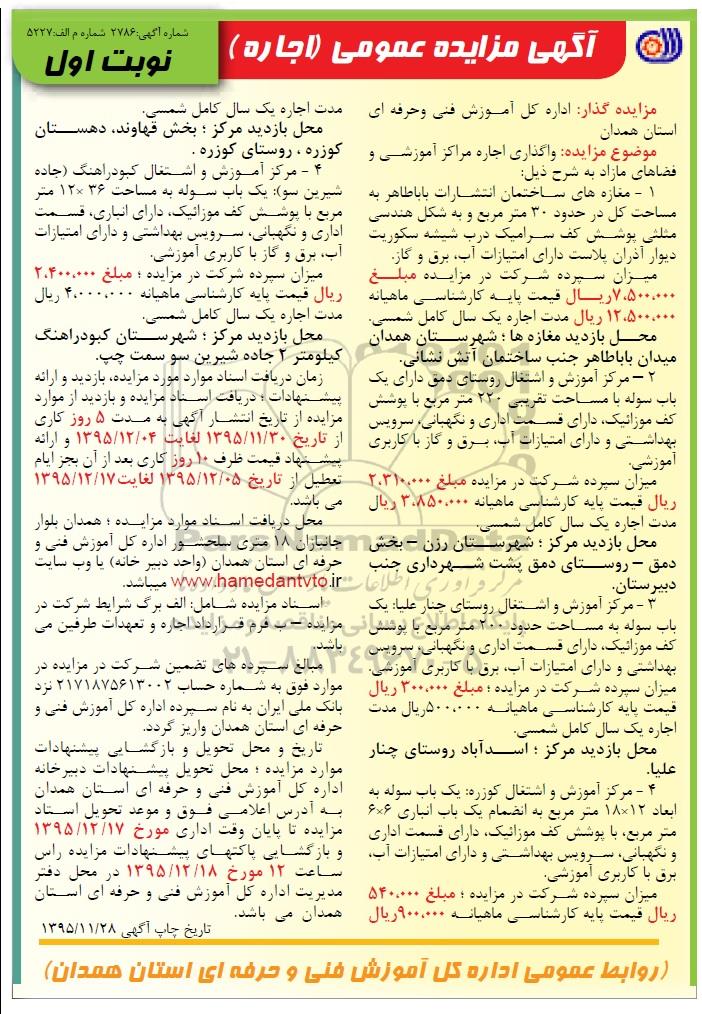 شماره آگهی:۲۷۸۶ شماره م الف:۵۲۲۷
نوبت اول
آگهی مزایده عمومی (اجاره)
مزایده گذار: اداره کل آمـوزش فنی وحرفه ای
استان همدان
موضوع مزایده: واگذاری اجاره مراکز آموزشـی و
فضاهای مازاد به شرح ذیل:
۱ - مغازه های سـاختمان انتشـارات باباطاهر به
مساحت کل در حدود ۳۰ متر مربع و به شکل هندسی
مثلثی پوشش کف سرامیک درب شیشه سکوریت
دیوار آذران پلاست دارای امتیازات آب، برق و گاز.
میـزان سـپرده شـرکت در مزایـده مبلـغ
۷،۵۰۰،۰۰۰ریـال قیمت پایـه کارشناسـی ماهیانه
۱۲،۵۰۰،۰۰۰ ریال مدت اجاره یک سال کامل شمسی.
محـل بازدید مغازه ها ؛ شهرسـتان همدان
میدان باباطاهر جنب ساختمان آتش نشانی.
۲ – مرکز آموزش و اشتغال روستای دمق دارای یک
باب سوله با مساحت تقریبی ۲۲۰ متر مربع با پوشش
کف موزائیک، دارای قسـمت اداری و نگهبانی، سرویس
بهداشـتی و دارای امتیازات آب، بـرق و گاز با کاربری
آموزشی.
میزان سپرده شـرکت در مزایده مبلغ ۲،۳۱۰،۰۰۰
ریال قیمت پایه کارشناسی ماهیانه ۳،۸۵۰،۰۰۰ ریال
مدت اجاره یک سال کامل شمسی.
محل بازدید مرکز ؛ شهرسـتان رزن – بخش
دمق – روستای دمق پشت شـهرداری جنب
دبیرستان.
۳ - مرکز آموزش و اشـتغال روستای چنار علیا: یک
باب سوله به مسـاحت حدود ۲۰۰ متر مربع با پوشش
کف موزائیک، دارای قسمت اداری و نگهبانی، سرویس
بهداشتی و دارای امتیازات آب، برق با کاربری آموزشی.
میزان سپرده شـرکت در مزایده ؛ مبلغ ۳۰۰،۰۰۰ ریال
قیمت پایه کارشناسـی ماهیانـه ۵۰۰،۰۰۰ریال مدت
اجاره یک سال کامل شمسی.
محل بازدید مرکز ؛ اسـدآباد روستای چنار
علیا.
۴ - مرکز آموزش و اشتغال کوزره: یک باب سوله به
ابعاد ۱۲×۱۸ متر مربع به انضمام یک باب انباری ۶×۶
متر مربع، با پوشش کف موزائیک، دارای قسمت اداری
و نگهبانی، سـرویس بهداشـتی و دارای امتیازات آب،
برق با کاربری آموزشی.
میزان سپرده شـرکت در مزایده ؛ مبلغ ۵۴۰،۰۰۰
ریال قیمت پایه کارشناسـی ماهیانـه ۹۰۰،۰۰۰ریال
مدت اجاره یک سال کامل شمسی.
محل بازدید مرکز ؛ بخش قهاوند، دهسـتان
کوزره ، روستای کوزره .
۴ - مرکز آمـوزش و اشـتغال کبودراهنگ (جاده
شیرین سو): یک باب سـوله به مساحت ۳۶ ×۱۲ متر
مربع با پوشـش کف موزائیک، دارای انباری، قسـمت
اداری و نگهبانی، سـرویس بهداشتی و دارای امتیازات
آب، برق و گاز با کاربری آموزشی.
میزان سپرده شرکت در مزایده ؛ مبلغ ۲،۴۰۰،۰۰۰
ریال قیمت پایه کارشناسی ماهیانه ۴،۰۰۰،۰۰۰ ریال
مدت اجاره یک سال کامل شمسی.
محل بازدید مرکز ؛ شهرستان کبودراهنگ
کیلومتر ۲ جاده شیرین سو سمت چپ.
زمان دریافت اسناد موارد مورد مزایده، بازدید و ارائه
پیشنهادات ؛ دریافت اسـناد مزایده و بازدید از موارد
مزایده از تاریخ انتشـار آگهی به مـدت ۵ روز کاری
از تاریخ ۱۳۹۵/۱۱/۳۰ لغایت ۱۳۹۵/۱۲/۰۴ و ارائه
پیشـنهاد قیمت ظرف ۱۰ روز کاری بعد از آن بجز ایام
تعطیل از تاریخ ۱۳۹۵/۱۲/۰۵ لغایت۱۳۹۵/۱۲/۱۷
می باشد.
محل دریافت اسـناد موارد مزایـده ؛ همدان بلوار
جانبازان ۱۸ متری سلحشـور اداره کل آموزش فنی و
حرفه ای استان همدان (واحد دبیر خانه) یا وب سایت
www.hamedantvto.ir میباشد.
اسـناد مزایده شـامل: الف برگ شرایط شرکت در
مزایده – ب فرم قـرارداد اجاره و تعهدات طرفین می
باشد.
مبالغ سـپرده های تضمین شـرکت در مزایده در
موارد فوق به شـماره حساب ۲۱۷۱۸۷۵۶۱۳۰۰۲ نزد
بانک ملی ایران به نام سـپرده اداره کل آموزش فنی و
حرفه ای استان همدان واریز گردد.
تاریخ و محل تحویل و بازگشـایی پیشنهادات
موارد مزایده ؛ محل تحویل پیشـنهادات دبیرخانه
اداره کل آموزش فنی و حرفه ای اسـتان همدان
بـه آدرس اعلامـی فـوق و موعد تحویل اسـناد
مزایده تا پایان وقت اداری مورخ ۱۳۹۵/۱۲/۱۷
و بازگشـایی پاکتهـای پیشـنهادات مزایده راس
ساعت ۱۲ مورخ ۱۳۹۵/۱۲/۱۸ در محل دفتر
مدیریت اداره کل آموزش فنی و حرفه ای اسـتان
همدان می باشد.
تاریخ چاپ آگهی ۱۳۹۵/۱۱/۲۸
(روابط عمومی اداره کل آموزش فنی و حرفه ای استان همدان)